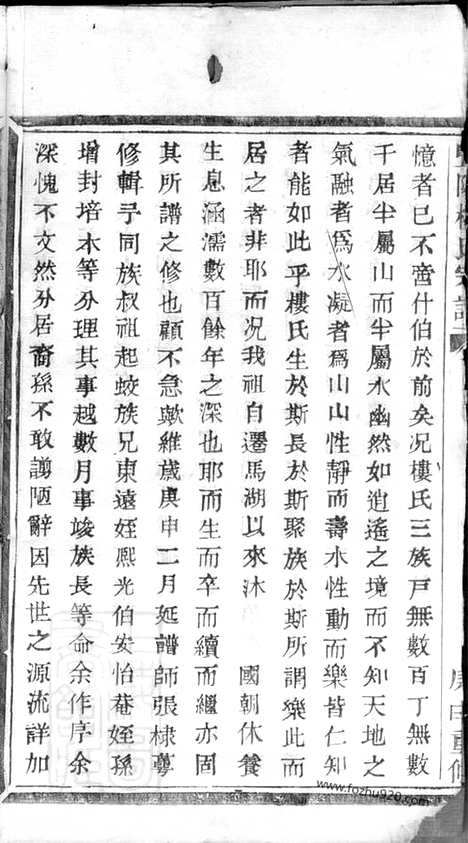 憶者已不啻什伯於前矣况樓氏三族戸無數百丁無數
千居半屬山而半屬水幽然如逍遙之境而不知天地之
氣融者爲水凝者爲山山性靜而壽水性動而樂皆仁知
者能如此乎樓氏生於斯長於斯聚族於斯所謂樂此而
居之者非耶而况我祖自遷馬湖以來沐 國朝休養
生息涵濡數百餘年之深也耶而生而卒而續而繼亦固
其所譜之修也顧不急歟維歲庚申二月延譜師張棣萼
修輯予同族叔祖起蛟族兄東遠姪熙光伯安怡菴姪孫
增封培木等分理其事越數月事竣族長等命余作序余
深愧不文然分居裔孫不敢謭陋辭因先世之源流詳加
庚申重修
www.fozhu920.com